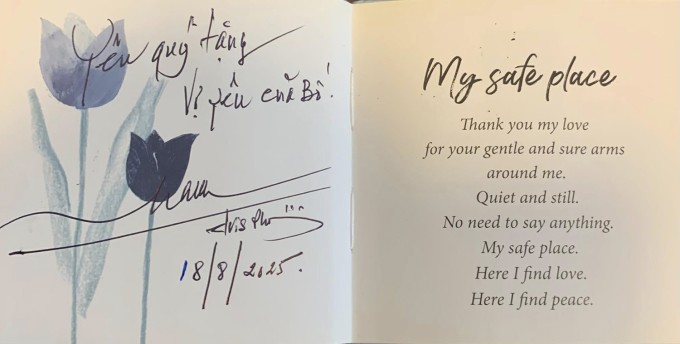 Yêu quý tặng
Vợ yêu của Bố!
18/8/2025.
My safe place
Thank you my love
for your gentle and sure arms
around me.
Quiet and still.
No need to say anything.
My safe place.
Here I find love.
Here I find peace.